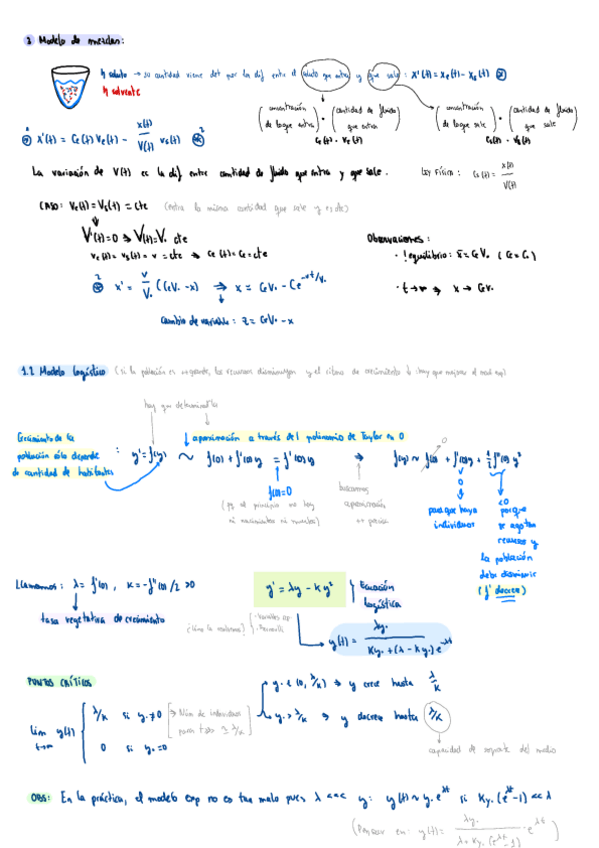 1 Modelo de mezclas:
η soluto → su cantidad viene det por la dif entre el soluto que entra y que sale : x'(t) = xe(t) - xs(t) ⊛
η solvente
(concentración de lo que entra) · (cantidad de fluido que entra)
(concentración de lo que sale) · (cantidad de fluido que sale)
Ce(t) · Ve(t)
Cs(t) · Vs(t)
⊛ x'(t) = Ce(t) Ve(t) - x(t)/V(t) Vs(t) ⊛²
La variación de V(t) es la dif entre cantidad de fluido que entra y que sale.
Ley Física: Cs(t) = x(t)/V(t)
CASO: Ve(t) = Vs(t) = cte (entra la misma cantidad que sale y es cte)
V'(t)=0 ⇒ V(t)=V₀ cte
Ve(t) = Vs(t) = v = cte ⇒ Ce(t)=Ce=cte
Observaciones:
· !equilibrio: x̄ = CeV₀ (Ce = C₀)
⊛² x' = v/V₀ (CeV₀ - x) ⇒ x = CeV₀ - Ce^(-vt/V₀)
· t→∞ ⇒ x → CeV₀
Cambio de variable: z = CeV₀ - x
1.2 Modelo logístico (si la población es grande, los recursos disminuyen y el ritmo de crecimiento ↓ hay que mejorar el mod exp)
hay que determinarla
Crecimiento de la población sólo depende de cantidad de habitantes
: y' = f(y) ~ f(0) + f'(0)y = f'(0)y → f(y) ~ f(0) + f'(0)y + ½ f''(0) y²
aproximación a través del polinomio de Taylor en 0
f(0)=0
(pq al principio no hay ni nacimientos ni muertes)
buscamos aproximación + precisa
0
para que haya individuos
<0
porque se agotan recursos y la población debe disminuir
(f' decrece)
Llamamos: λ = f'(0), K = -f''(0)/2 >0
tasa vegetativa de crecimiento
y' = λy - Ky²
Ecuación logística
¿Cómo la resolvemos?
- Variables sep.
- Bernoulli
y(t) = λy₀ / (Ky₀ + (λ - Ky₀)e^(-λt))
PUNTOS CRÍTICOS
lim t→∞ y(t) { λ/K si y₀≠0
0 si y₀=0
→ Núm de individuos para t→∞ ≃ λ/K
y₀ ∈ (0, λ/K) ⇒ y crece hasta λ/K
y₀ > λ/K ⇒ y decrece hasta λ/K
capacidad de soporte del medio
OBS: En la práctica, el modelo exp no es tan malo pues λ <<< y: y(t) ~ y₀e^(λt) si Ky₀(e^(λt)-1) << λ
(Pensar en: y(t) = λy₀ / (λ + Ky₀(e^(λt)-1)) · e^(λt))